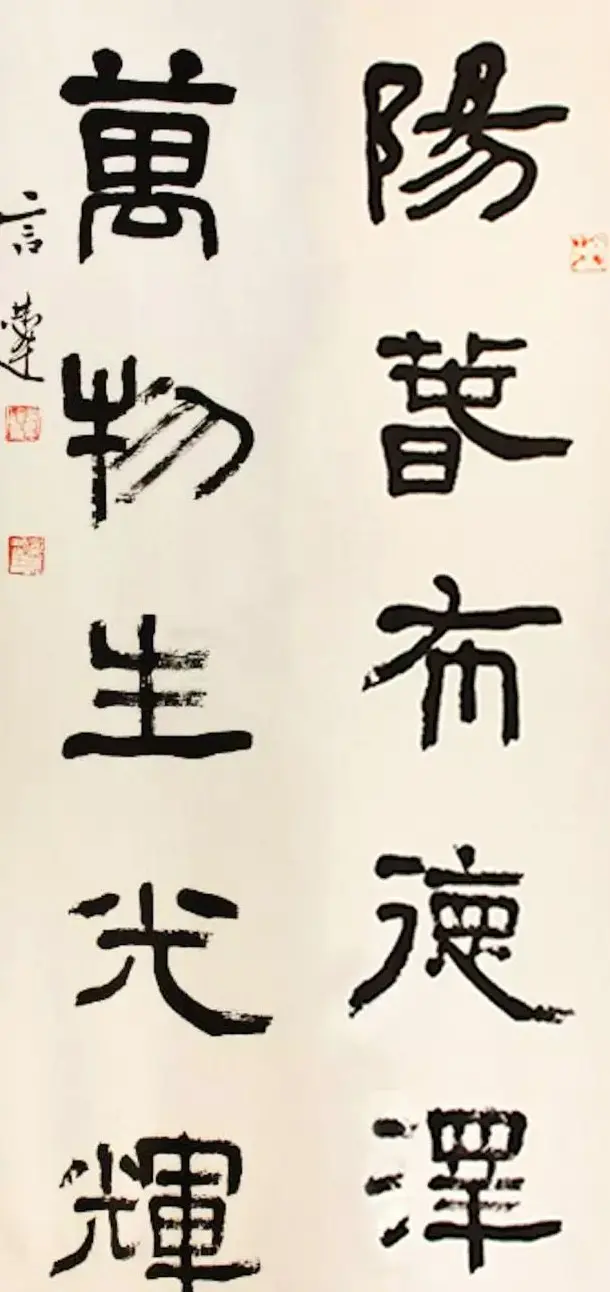 陽萅布德澤
萬物生光輝
言